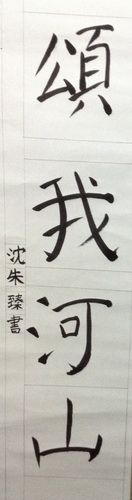 頌我河山
沈朱臻書